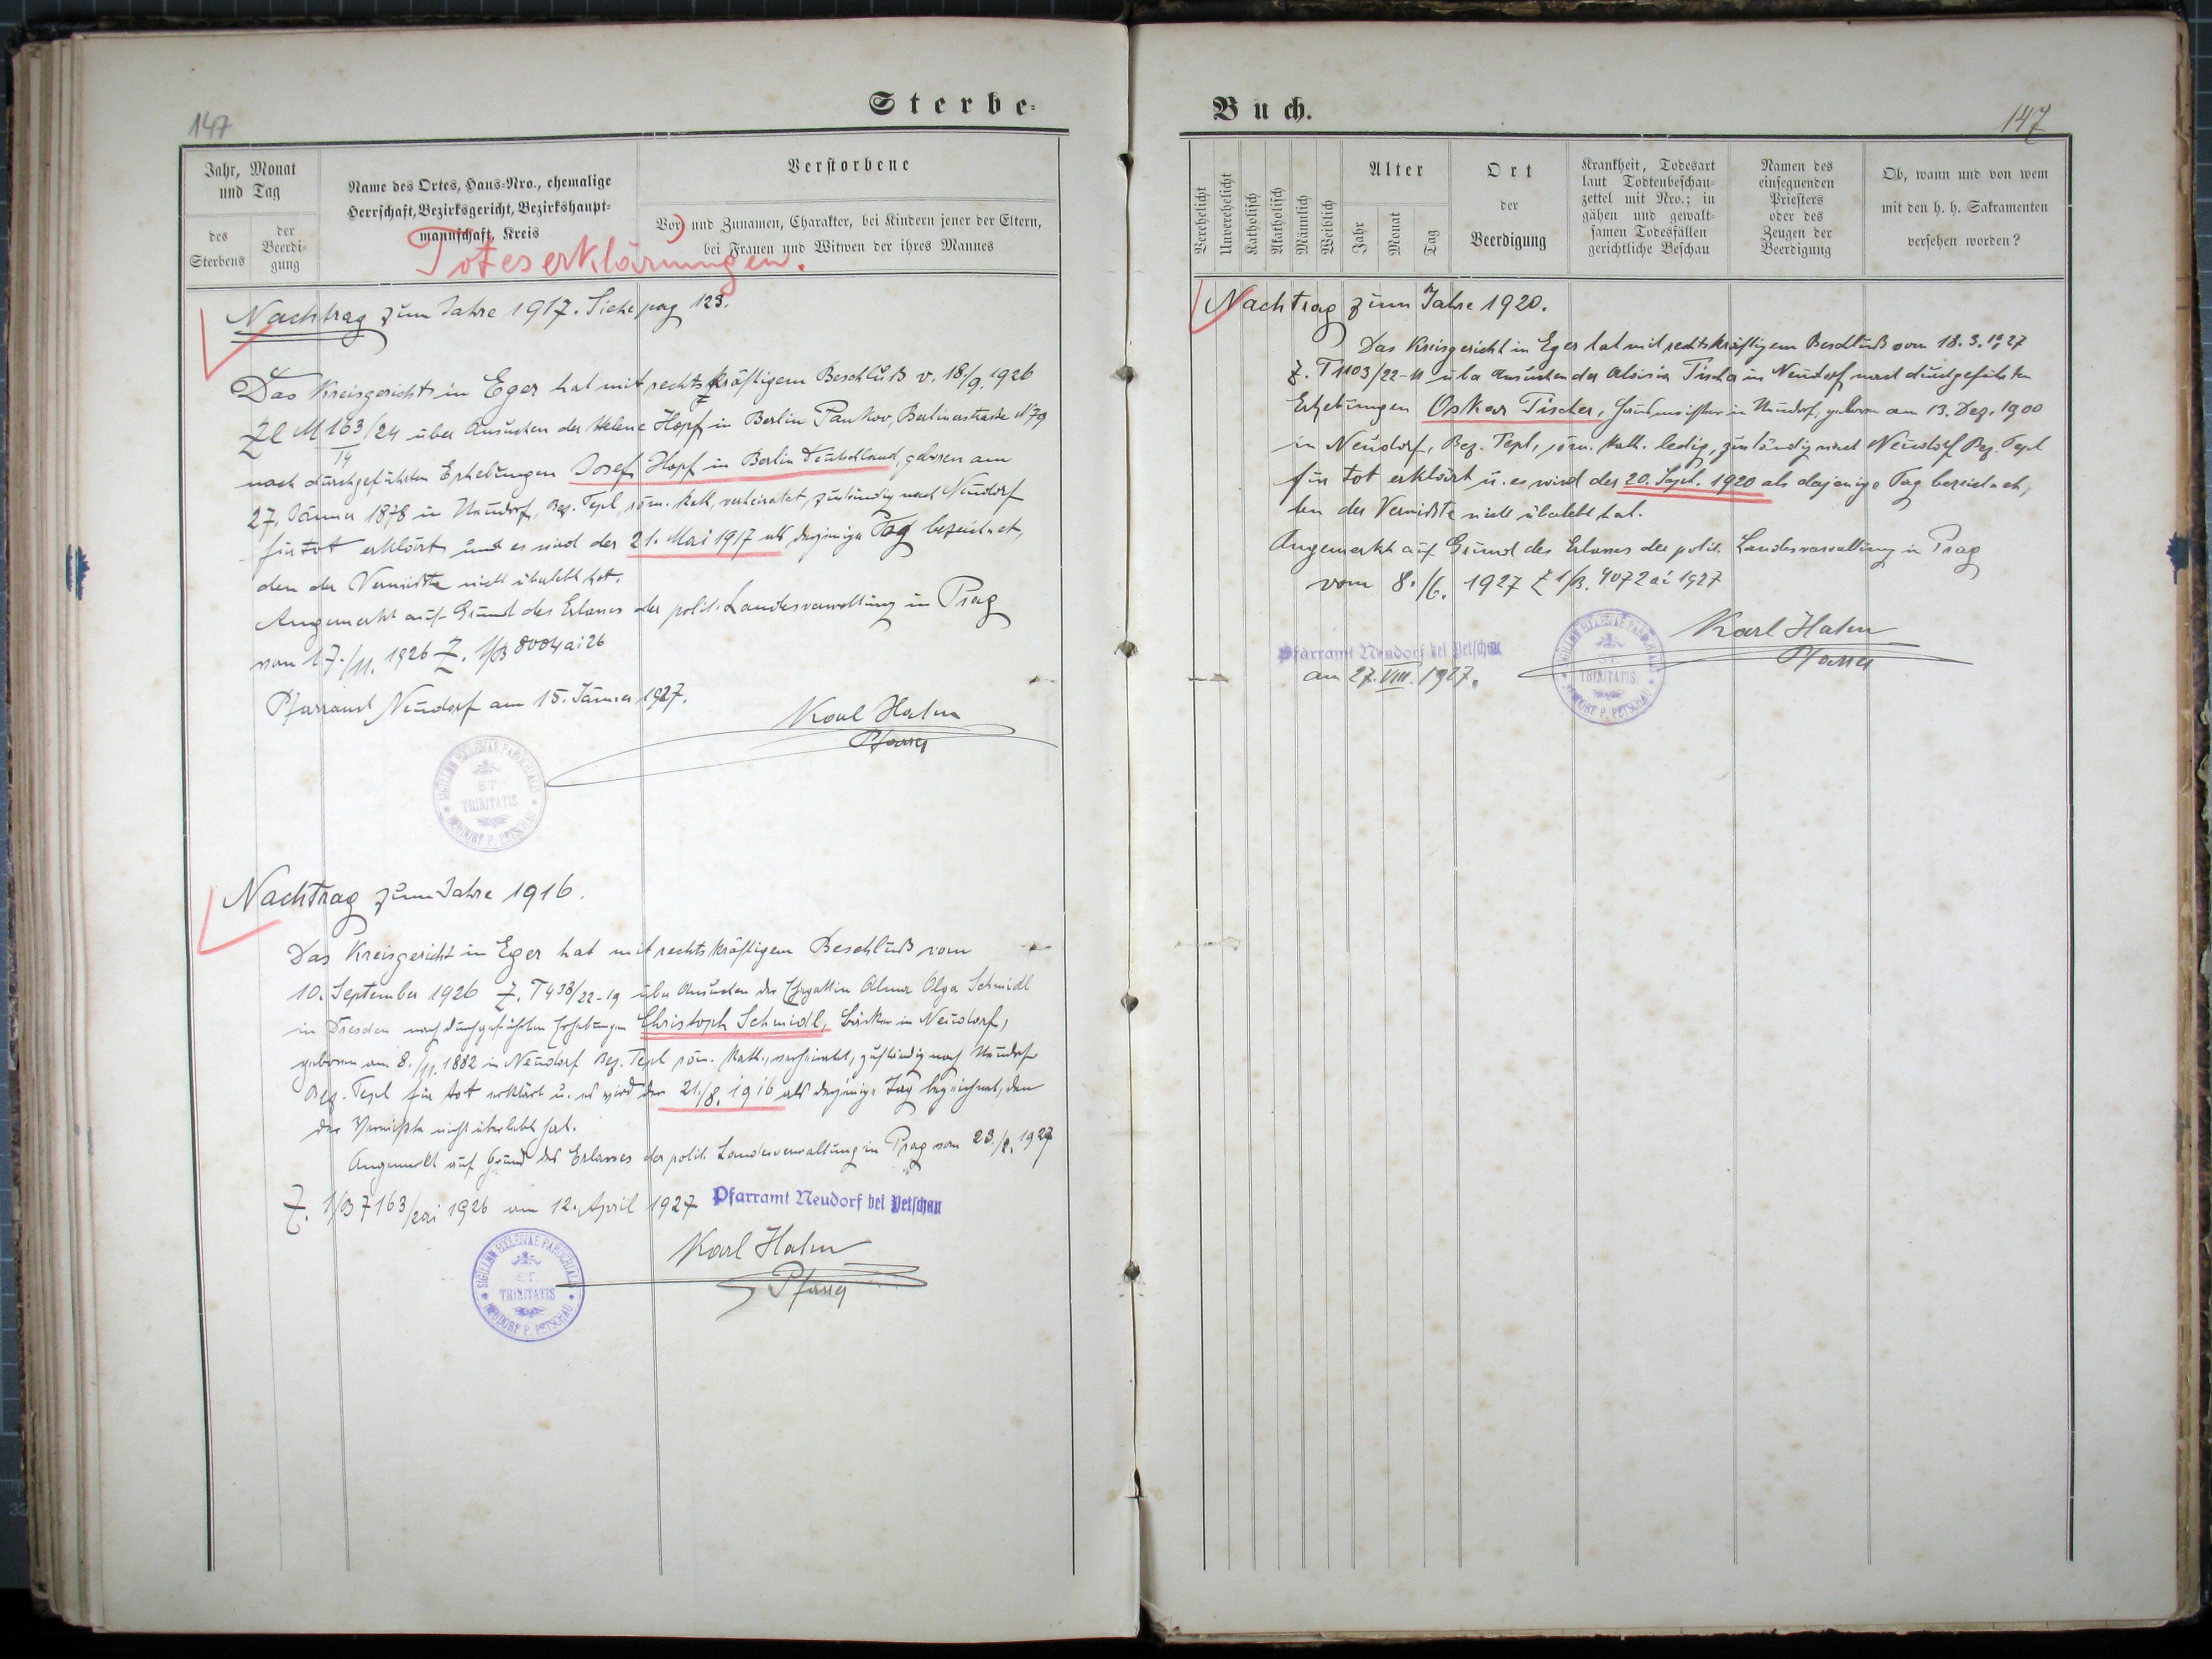 147
Sterbe-
Jahr, Monat und Tag
des Sterbens
der Beerdi-gung
Name des Ortes, Haus-Nro., ehemalige
Herrschaft, Bezirksgericht, Bezirkshaupt-
mannschaft, Kreis
Verstorbene
Vor- und Zunamen, Charakter, bei Kindern jener der Eltern,
bei Frauen und Witwen der ihres Mannes
Toteserklärungen.
Nachtrag zum Jahre 1917. Siehe pag 123.
Das Kreisgericht in Eger hat mit rechtskräftigem Beschluß v. 18./9. 1926
Zl M 163/24 über Ansuchen der Helene Hopf in Berlin Pankov, Berlinerstraße N 79
14
nach durchgeführten Erhebungen Josef Hopf in Berlin Deutschland, geboren am
27. Jänner 1878 in Neudorf, Bez. Tepl, röm. kath, verheiratet, zuständig nach Neudorf
für tot erklärt und es wird der 21. Mai 1917 als derjenige Tag bezeichnet,
den der Vermißte nicht überlebt hat.
Angemerkt auf Grund des Erlasses der polit. Landesverwaltung in Prag
vom 17./11. 1926 Z. 1/B 8004 ai 26
Pfarramt Neudorf am 15. Jänner 1927.
Karl Hahn
Pfarrer
SIGILLUM ECCLESIAE PAROCHIALIS
ST. TRINITATIS
NEUDORF P. PETSCHAU
Nachtrag zum Jahre 1916.
Das Kreisgericht in Eger hat mit rechtskräftigem Beschluß vom
10. September 1926 Z. T 438/22-19 über Ansuchen der Ehegattin Alma Olga Schmidl
in Dresden nach durchgeführten Erhebungen Christoph Schmidl, Bäcker in Neudorf,
geboren am 8./11. 1882 in Neudorf Bez. Tepl röm. kath., verheiratet, zuständig nach Neudorf
Bez. Tepl für tot erklärt u. es wird der 21./8. 1916 als derjenige Tag bezeichnet, den
der Vermißte nicht überlebt hat.
Angemerkt auf Grund des Erlasses der polit. Landesverwaltung in Prag vom 23./2. 1927
Z. 1/B 7163/ ai 1926 am 12. April 1927 Pfarramt Neudorf bei Petschau
Karl Hahn
Pfarrer
SIGILLUM ECCLESIAE PAROCHIALIS
ST. TRINITATIS
NEUDORF P. PETSCHAU
Buch.
147
Verehelicht
Unverehelicht
Katholisch
Akatholisch
Männlich
Weiblich
Alter
Jahr
Monat
Tag
Ort
der
Beerdigung
Krankheit, Todesart
laut Todtenbeschau-
zettel mit Nro.; in
gähen und gewalt-
samen Todesfällen
gerichtliche Beschau
Namen des
einsegnenden
Priesters
oder des
Zeugen der
Beerdigung
Ob, wann und von wem
mit den h. h. Sakramenten
versehen worden?
Nachtrag zum Jahre 1920.
Das Kreisgericht in Eger hat mit rechtskräftigem Beschluß vom 18. 3. 1927
Z. T 1103/22-11 über Ansuchen der Aloisia Tischer in Neudorf nach durchgeführten
Erhebungen Oskar Tischer, in Neudorf, geboren am 13. Dez. 1900
in Neudorf, Bez. Tepl, röm. kath. ledig, zuständig nach Neudorf Bez. Tepl
für tot erklärt u. es wird der 20. Sept. 1920 als derjenige Tag bezeichnet,
den der Vermißte nicht überlebt hat.
Angemerkt auf Grund des Erlasses der polit. Landesverwaltung in Prag
vom 8./6. 1927 Z 1/B. 4072 ai 1927
Pfarramt Neudorf bei Petschau
am 27. VIII. 1927.
Karl Hahn
Pfarrer
SIGILLUM ECCLESIAE PAROCHIALIS
ST. TRINITATIS
NEUDORF P. PETSCHAU